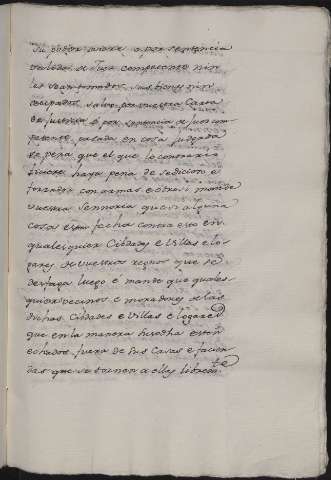 su poder sacare o por sentencia
valedera de Juez competente nin
les sean tomados sus bienes nin
ocupados, salvo por nuestra Carta
de justicia o por sentencia de Juez com
petente pasada en cosa judgada
se pena que el que lo contrario
ficiere haya pena de sedicioso e
forzador con armas e otrosi mande
vuestra Sennoria que si alguna
cosa esta fecha contra esto en
qualesquier Cibdades e Villas e lo
gares de vuestros regnos que se
desfaga luego e mande que quales
quier vecinos e moradores de las
dichas Cibdades e Villas e logares
que en la manera sosodha estén
echados fuera de sus Casas e facien
das que se tornen a ellas libremte